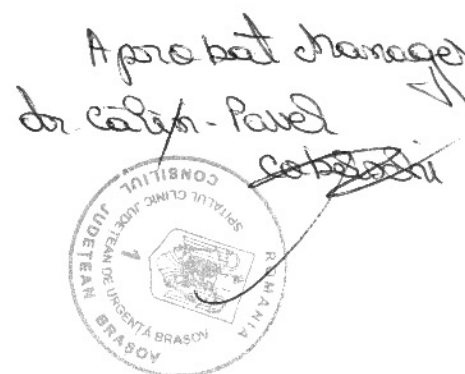 Aprobat Manager
dr. Călin-Pavel
Cobelschi
ROMANIA
CONSILIUL JUDEȚEAN BRASOV
SPITALUL CLINIC JUDEȚEAN DE URGENȚĂ BRASOV
1